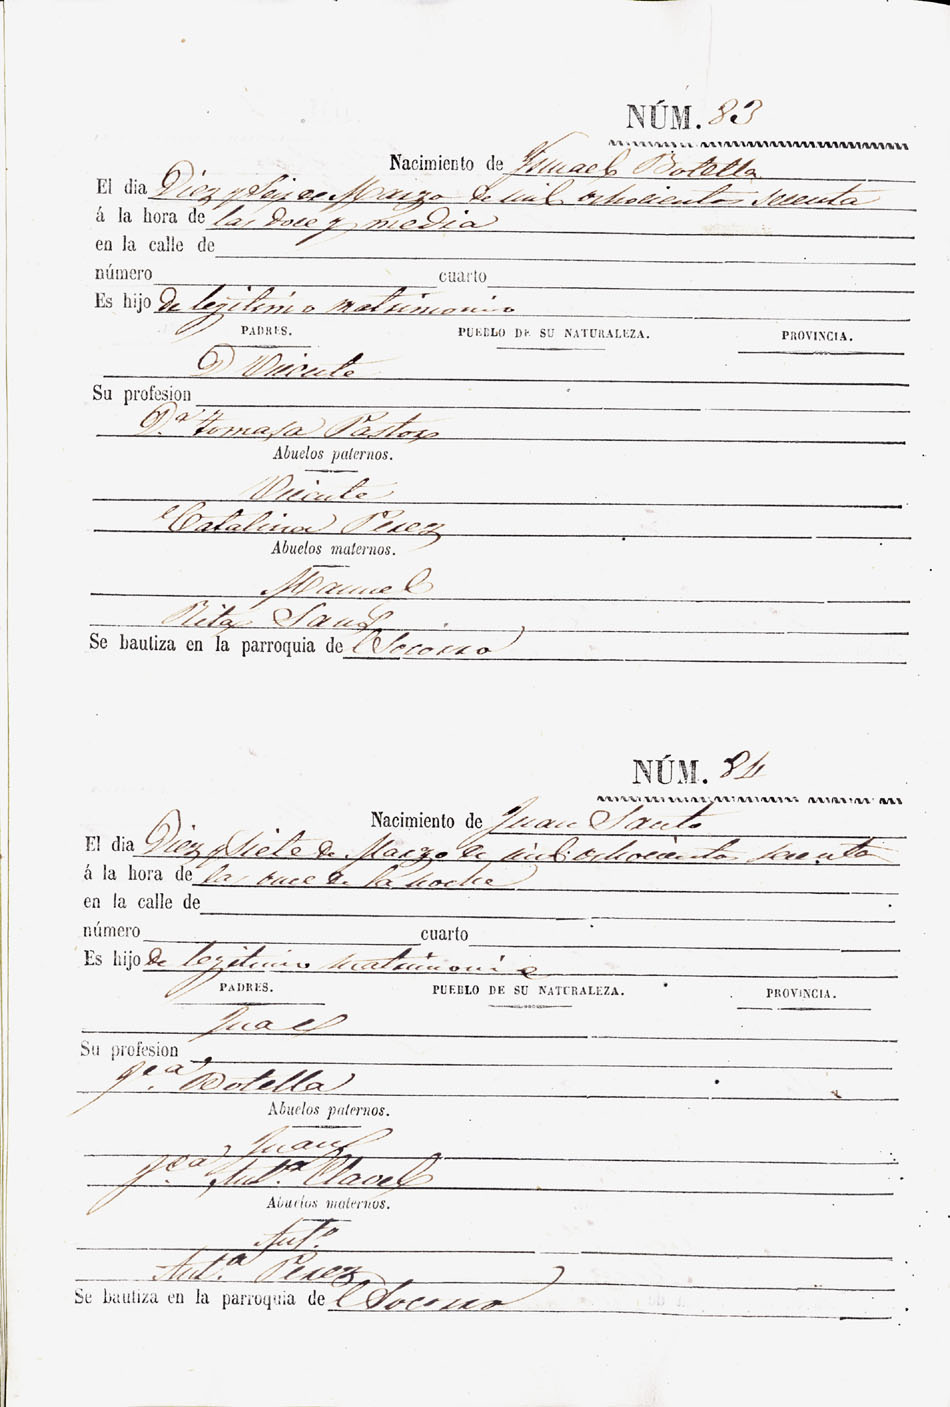 NÚM. 83
Nacimiento de Ysmael Botella
El dia Diez y seis de Marzo de mil ochocientos sesenta
á la hora de las doce y media
en la calle de
número cuarto
Es hijo de legitimo matrimonio
PADRES. PUEBLO DE SU NATURALEZA. PROVINCIA.
D Vicente
Su profesion
D.ª Tomasa Pastor
Abuelos paternos.
Vicente
Catalina Perez
Abuelos maternos.
Manuel
Rita Sanz
Se bautiza en la parroquia de Socorro
NÚM. 84
Nacimiento de Juan Santo
El dia Diez y siete de Marzo de mil ochocientos sesenta
á la hora de las once de la noche
en la calle de
número cuarto
Es hijo de legitimo matrimonio
PADRES. PUEBLO DE SU NATURALEZA. PROVINCIA.
Juan
Su profesion
Botella
Abuelos paternos.
Juan
Ant.ª Clavel
Abuelos maternos.
Ant.º
Ant.ª Perez
Se bautiza en la parroquia de Socorro